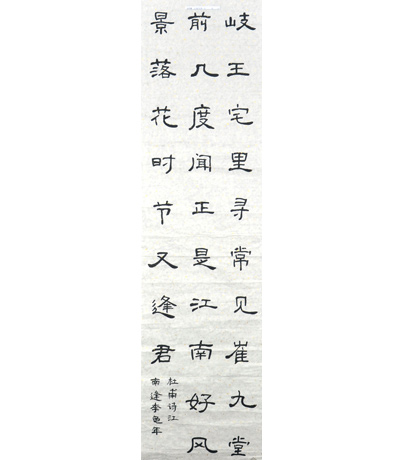 岐王宅里寻常见崔九堂
前几度闻正是江南好风
景落花时节又逢君
杜甫诗江
南逢李龟年